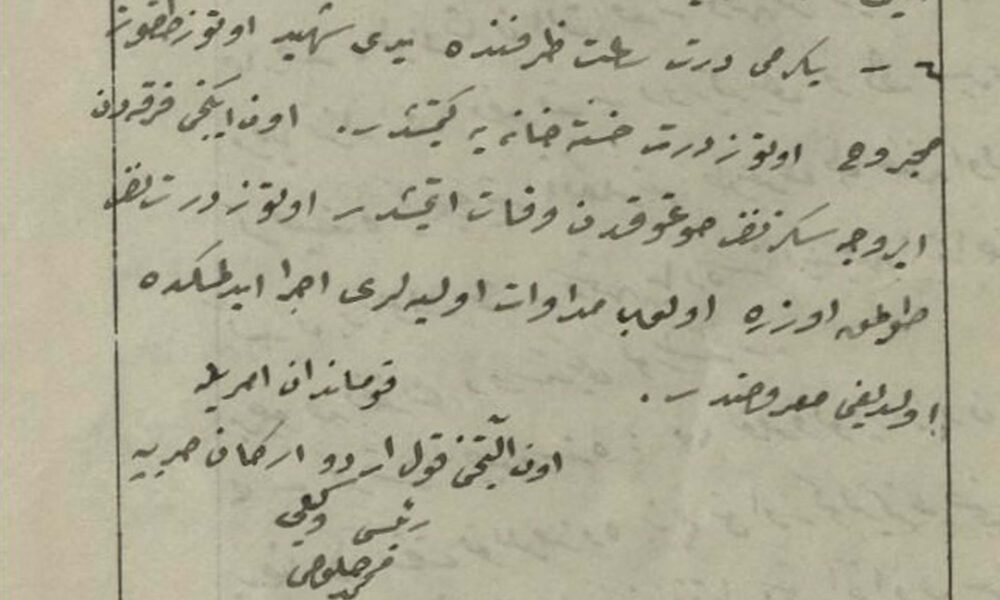 ٤ ـ یکرمی درت ساعت ظرفنده یدی شهید اوتوز طقوز
مجروح اوتوز درت خسته خانه یه کیتمشدر. اون ایکنجی فرقه دن
سکز نفر صوغوقدن وفات ایتمشدر اوتوز درت نفر
طوکمق اوزره اولوب مداوات اولیه لری اجرا ایدلمکده
اولدیغی معروضدر.
قوماندان امریله
اون التنجی قول اردو ارکان حربیه
رئیسی وکیلی